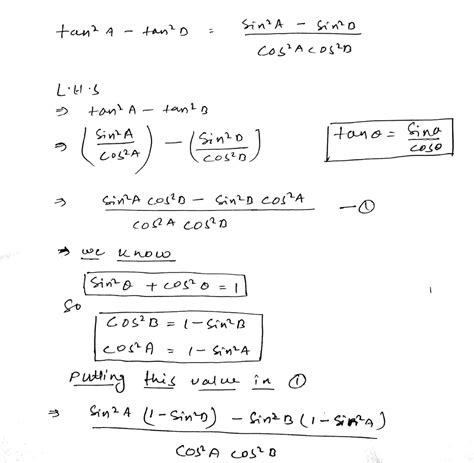 tan² A - tan² B = (sin²A - sin²B) / (cos²A cos²B)
L.H.S
⇒ tan² A - tan² B
⇒ (sin²A / cos²A) - (sin²B / cos²B)
tanθ = sinθ / cosθ
⇒ (sin²A cos²B - sin²B cos²A) / (cos²A cos²B) — ①
⇒ we know
sin²θ + cos²θ = 1
So
cos²B = 1 - sin²B
cos²A = 1 - sin²A
Putting this value in ①
⇒ (sin²A (1 - sin²B) - sin²B (1 - sin²A)) / (cos²A cos²B)